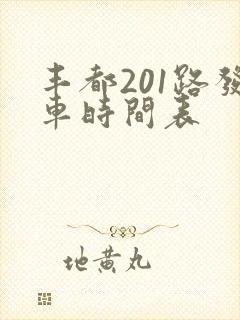 丰都201路發
車時間表
地黄丸